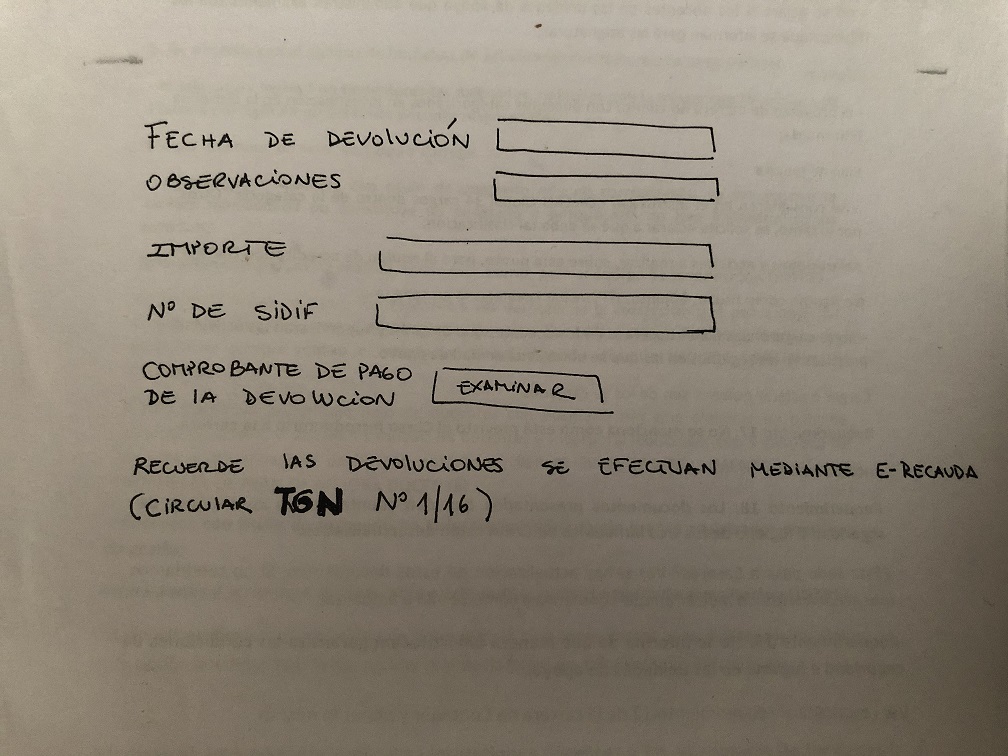 FECHA DE DEVOLUCIÓN
OBSERVACIONES
IMPORTE
Nº DE SIDIF
COMPROBANTE DE PAGO
DE LA DEVOLUCION
EXAMINAR
RECUERDE LAS DEVOLUCIONES SE EFECTUAN MEDIANTE E-RECAUDA
(CIRCULAR TGN Nº 1/16)